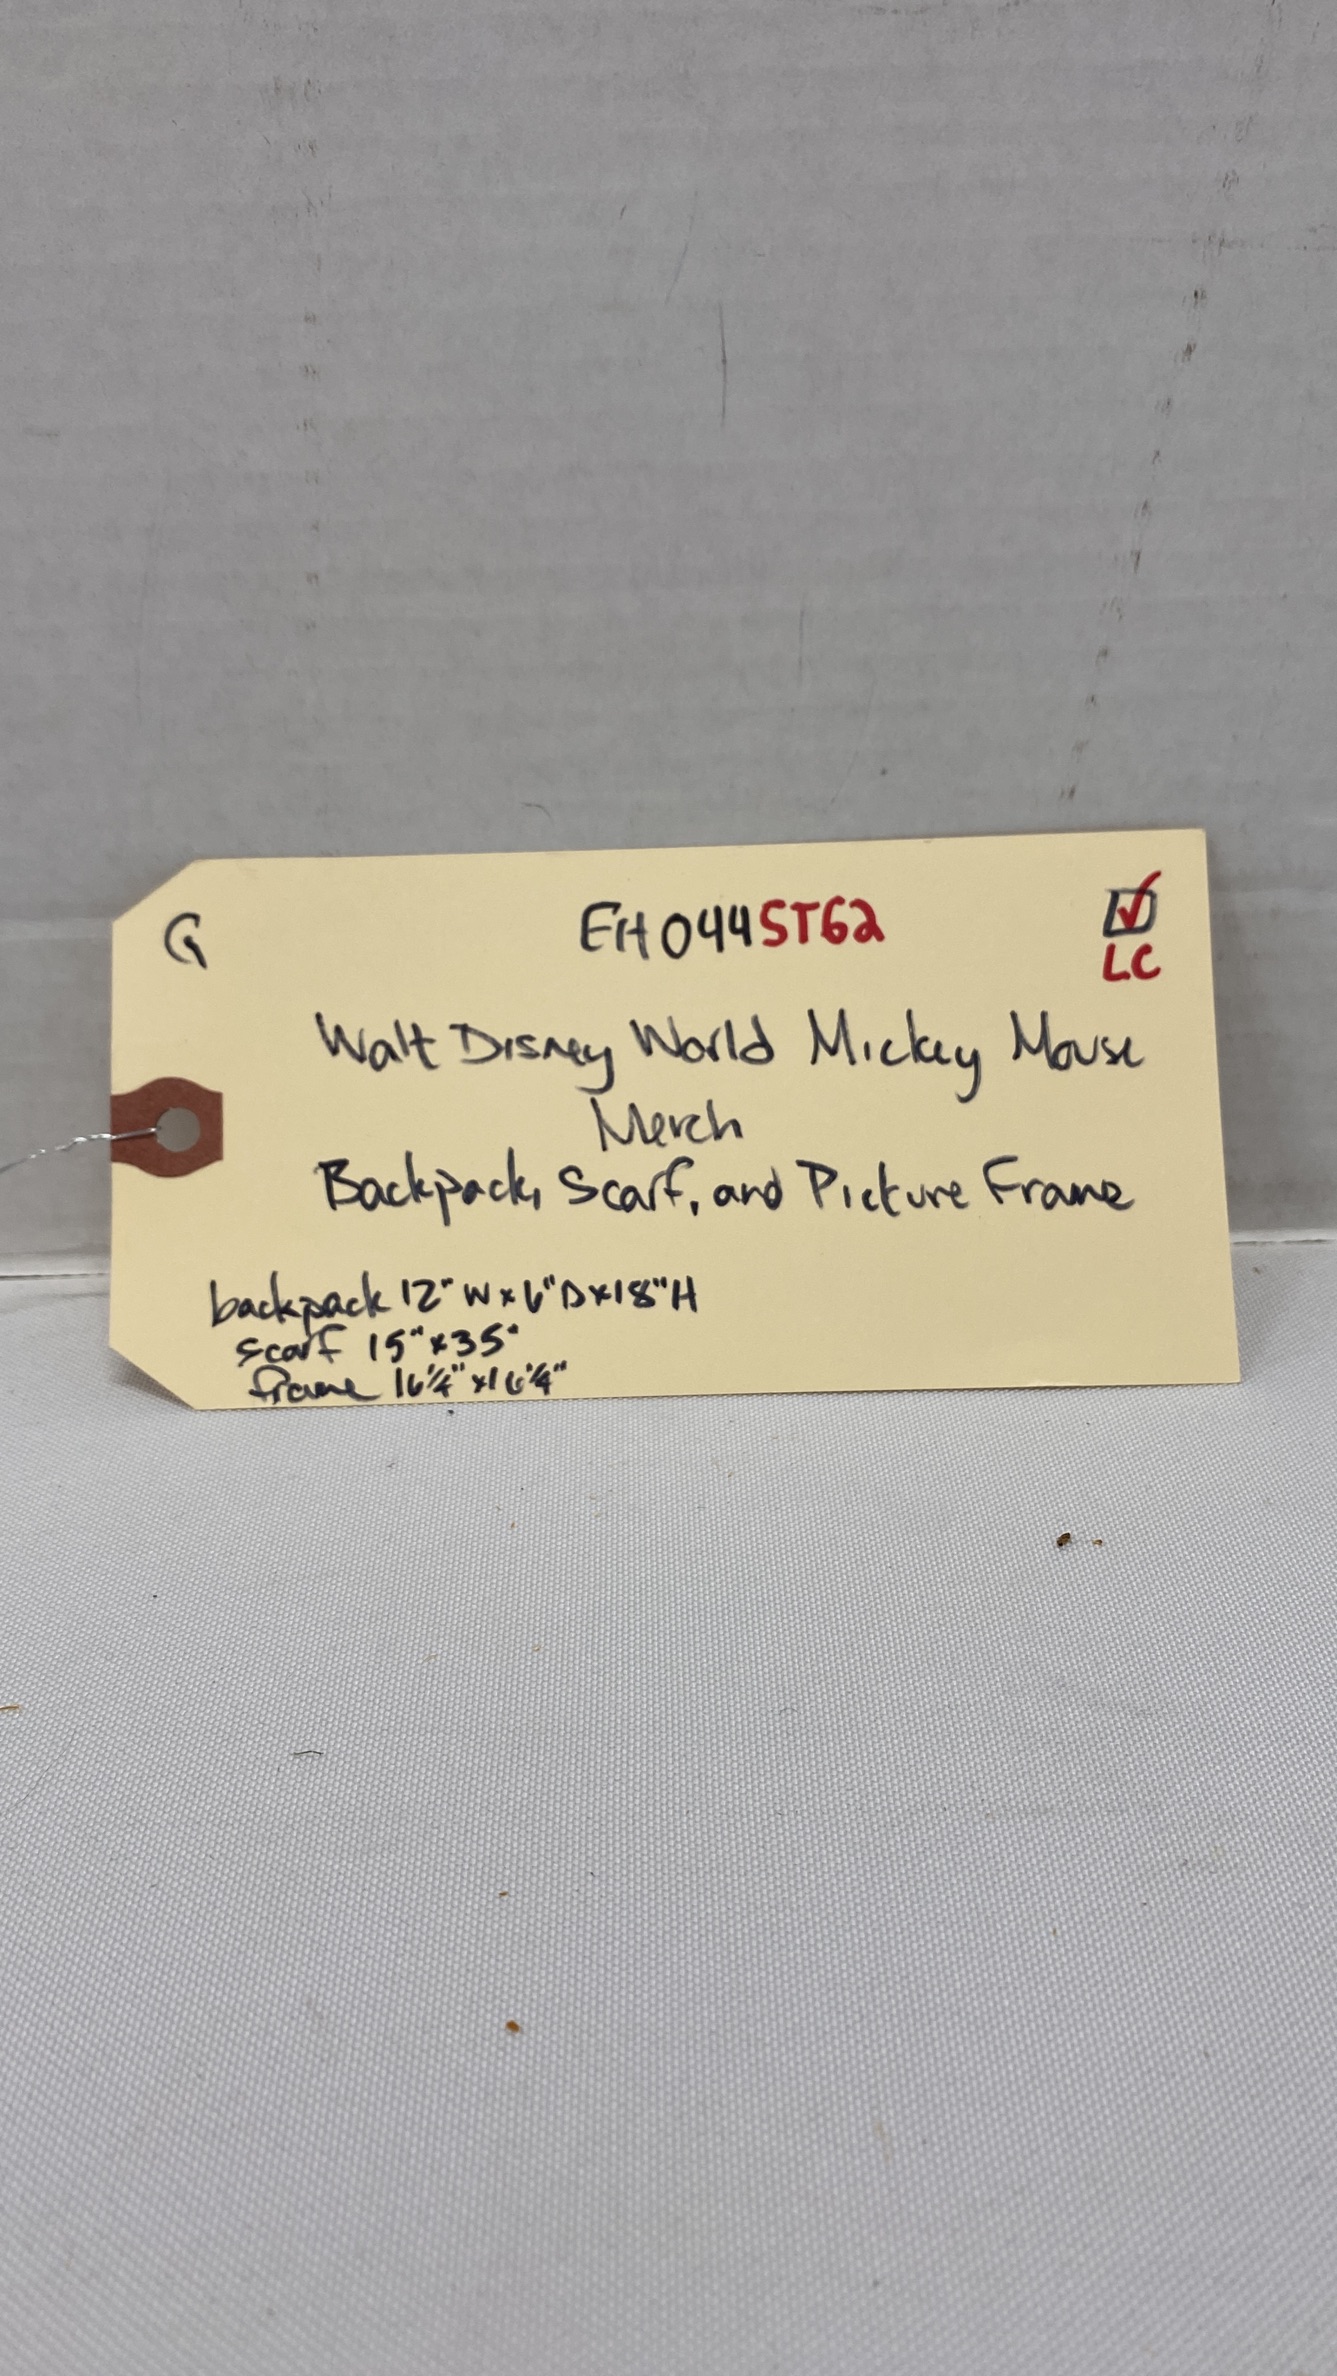 G EH044STG2 ☑
LC
Walt Disney World Mickey Mouse
Merch
Backpack, Scarf, and Picture Frame
backpack 12" W x 6" D x 18" H
scarf 15" x 35"
frame 16¼" x 16¼"